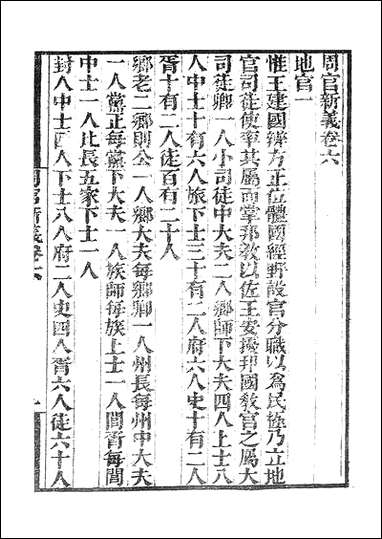 周官新義卷六
地官一
惟王建國辨方正位體國經野設官分職以爲民極乃立地
官司徒使率其屬而掌邦敎以佐王安擾邦國敎官之屬大
司徒卿一人小司徒中大夫二人鄉師下大夫四人上士八
人中士十有六人旅下士三十有二人府六人史十有二人
胥十有二人徒百有二十人
鄉老二鄉則公一人鄉大夫每鄉卿一人州長每州中大夫
一人黨正每黨下大夫一人族師每族上士一人閭胥每閭
中士一人比長五家下士一人
封人中士四人下士八人府二人史四人胥六人徒六十人
周官新義卷六 一